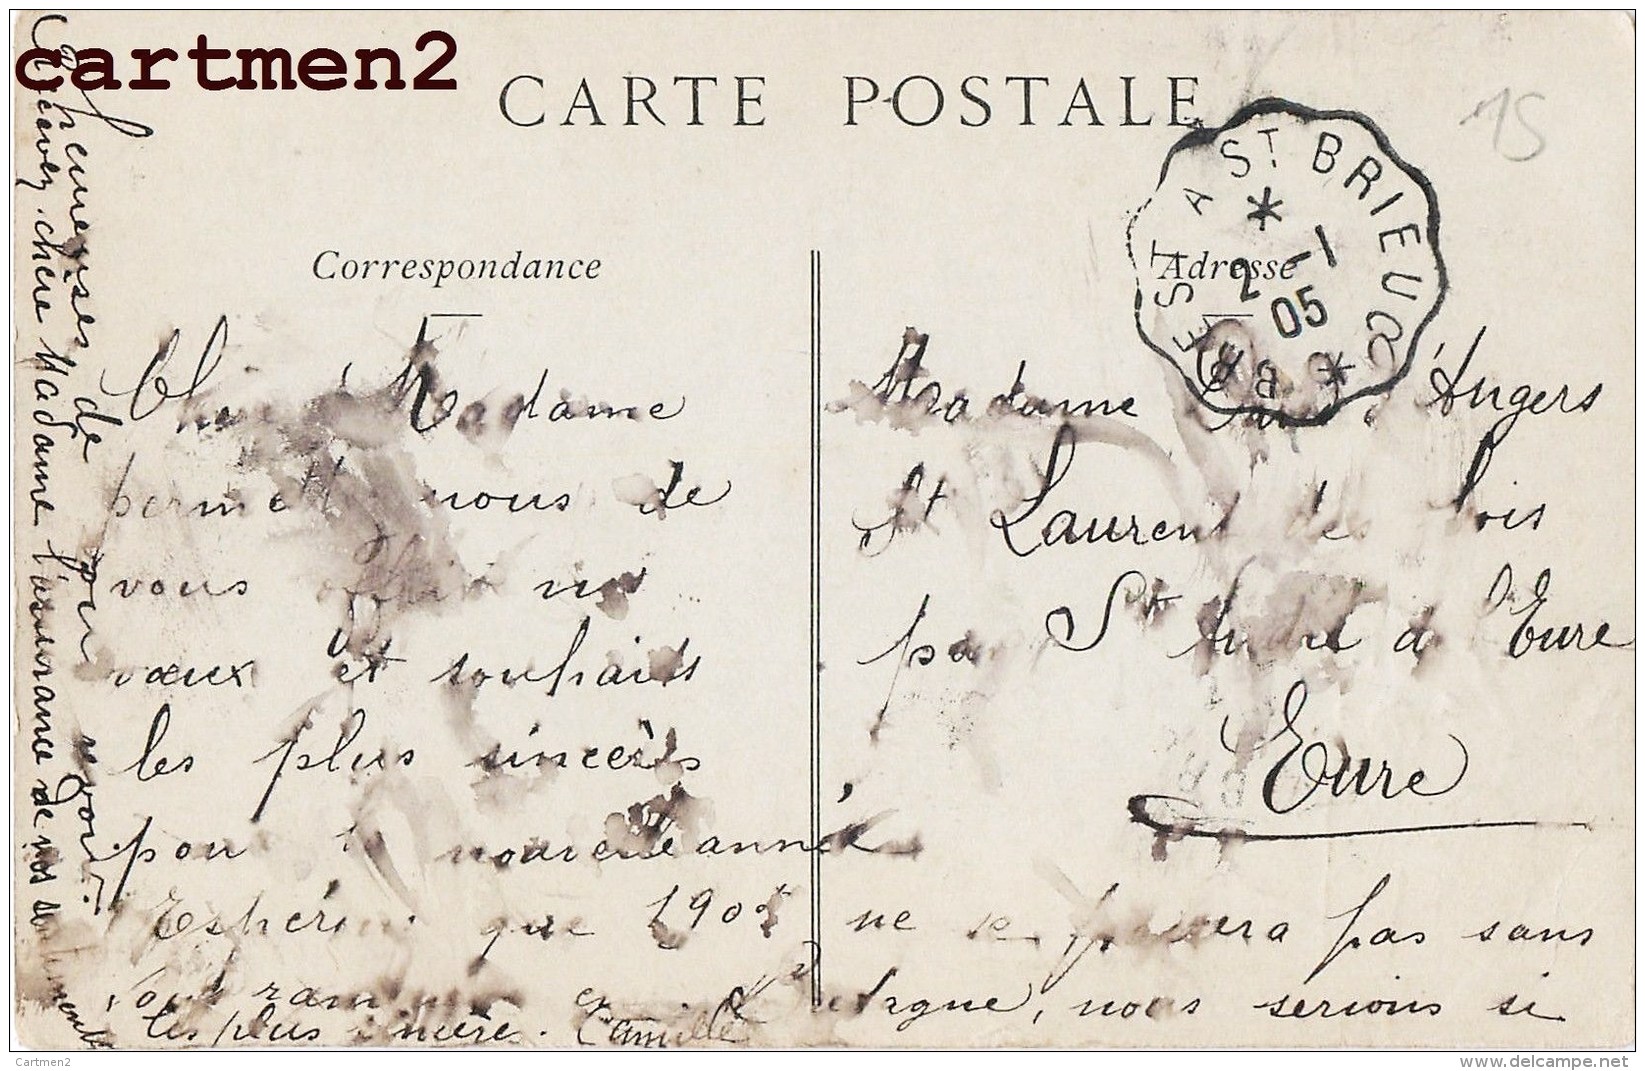 cartmen2
CARTE POSTALE
15
BREST A ST BRIEUC
2 -1
05
Correspondance
Adresse
Chère Madame
permett nous de
vous offrir nos
vœux et souhaits
les plus sincères
pour la nouvelle année,
Espérons que 1905 ne se passera pas sans
vous ramener en Bretagne, nous serions si
heureuses de vous revoir.
Recevez chère Madame l'assurance de nos sentiments
les plus sincères. Camille
Madame d'Angers
St Laurent des Bois
par St André de l'Eure
Eure
Cartmen2
delcampe.net